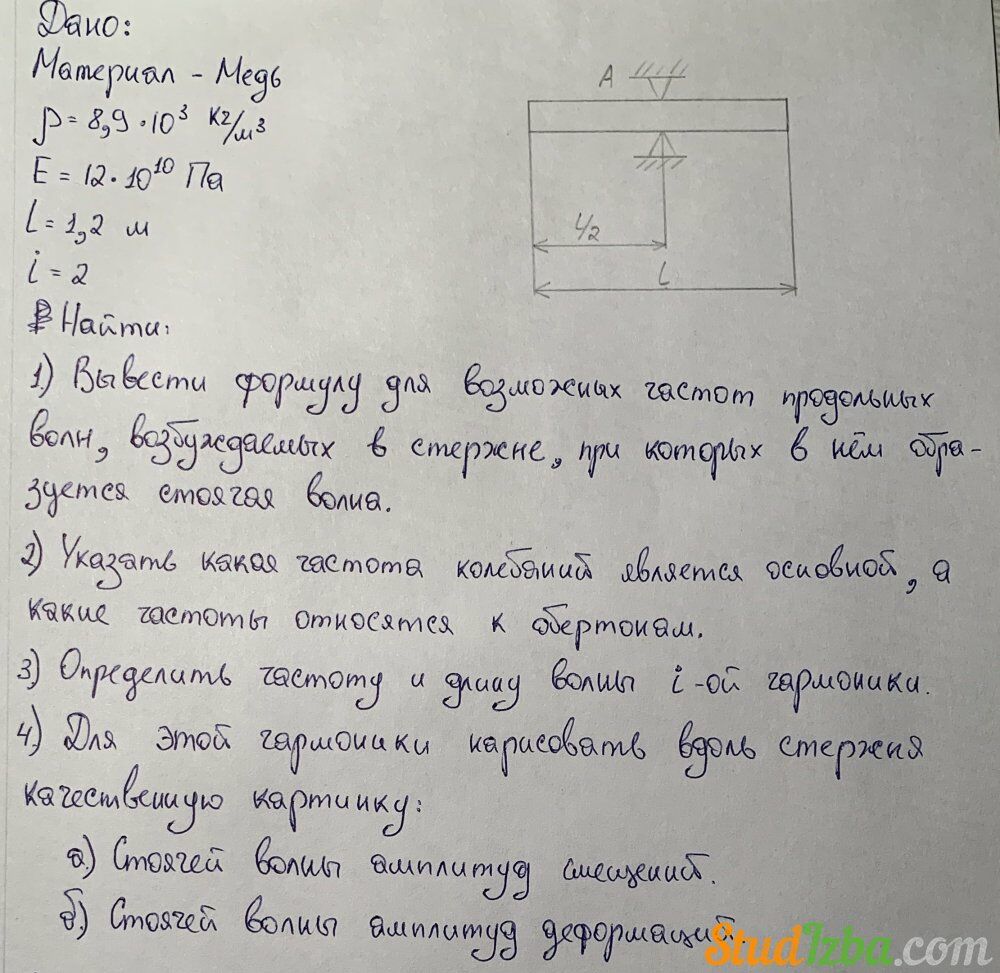 Дано:
Материал - Медь
ρ = 8,9 · 10³ кг/м³
E = 12 · 10¹⁰ Па
L = 1,2 м
i = 2
Найти:
A
L/2
L
1) Вывести формулу для возможных частот продольных
волн, возбуждаемых в стержне, при которых в нём обра-
зуется стоячая волна.
2) Указать какая частота колебаний является основной, а
какие частоты относятся к обертонам.
3) Определить частоту и длину волны i-ой гармоники.
4) Для этой гармоники нарисовать вдоль стержня
качественную картинку:
а) Стоячей волны амплитуд смещений.
б) Стоячей волны амплитуд деформаций.
StudIzba.com